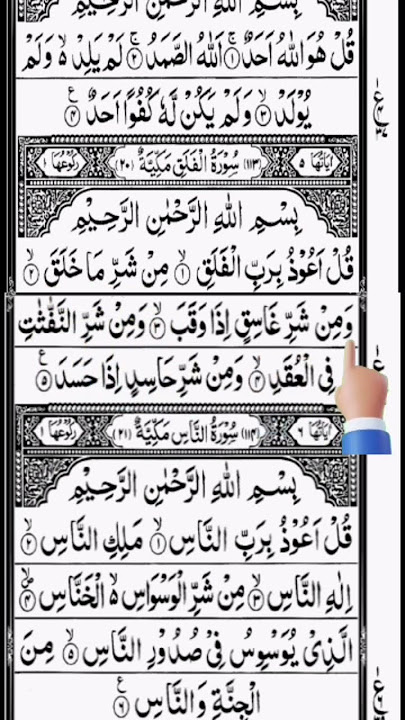 بِسْمِ اللهِ الرَّحْمٰنِ الرَّحِيْمِ
قُلْ هُوَ اللهُ اَحَدٌ ۚ﴿۱﴾ اَللهُ الصَّمَدُ ۚ﴿۲﴾ لَمْ يَلِدْ ۙ۬ وَلَمْ
يُوْلَدْ ۙ﴿۳﴾ وَلَمْ يَكُنْ لَّهٗ كُفُوًا اَحَدٌ ﴿۴﴾
اٰيَاتُهَا ۵ (۱۱۳) سُوْرَةُ الْفَلَقِ مَكِّيَّةٌ (۲۰) رُكُوْعُهَا ۱
بِسْمِ اللهِ الرَّحْمٰنِ الرَّحِيْمِ
قُلْ اَعُوْذُ بِرَبِّ الْفَلَقِ ۙ﴿۱﴾ مِنْ شَرِّ مَا خَلَقَ ۙ﴿۲﴾
وَمِنْ شَرِّ غَاسِقٍ اِذَا وَقَبَ ۙ﴿۳﴾ وَمِنْ شَرِّ النَّفّٰثٰتِ
فِی الْعُقَدِ ۙ﴿۴﴾ وَمِنْ شَرِّ حَاسِدٍ اِذَا حَسَدَ ﴿۵﴾
اٰيَاتُهَا ۶ (۱۱۴) سُوْرَةُ النَّاسِ مَكِّيَّةٌ (۲۱) رُكُوْعُهَا ۱
بِسْمِ اللهِ الرَّحْمٰنِ الرَّحِيْمِ
قُلْ اَعُوْذُ بِرَبِّ النَّاسِ ۙ﴿۱﴾ مَلِكِ النَّاسِ ۙ﴿۲﴾
اِلٰهِ النَّاسِ ۙ﴿۳﴾ مِنْ شَرِّ الْوَسْوَاسِ ۙ۬ الْخَنَّاسِ ۪ۙ﴿۴﴾
الَّذِیْ يُوَسْوِسُ فِیْ صُدُوْرِ النَّاسِ ۙ﴿۵﴾ مِنَ
الْجِنَّةِ وَالنَّاسِ ﴿۶﴾